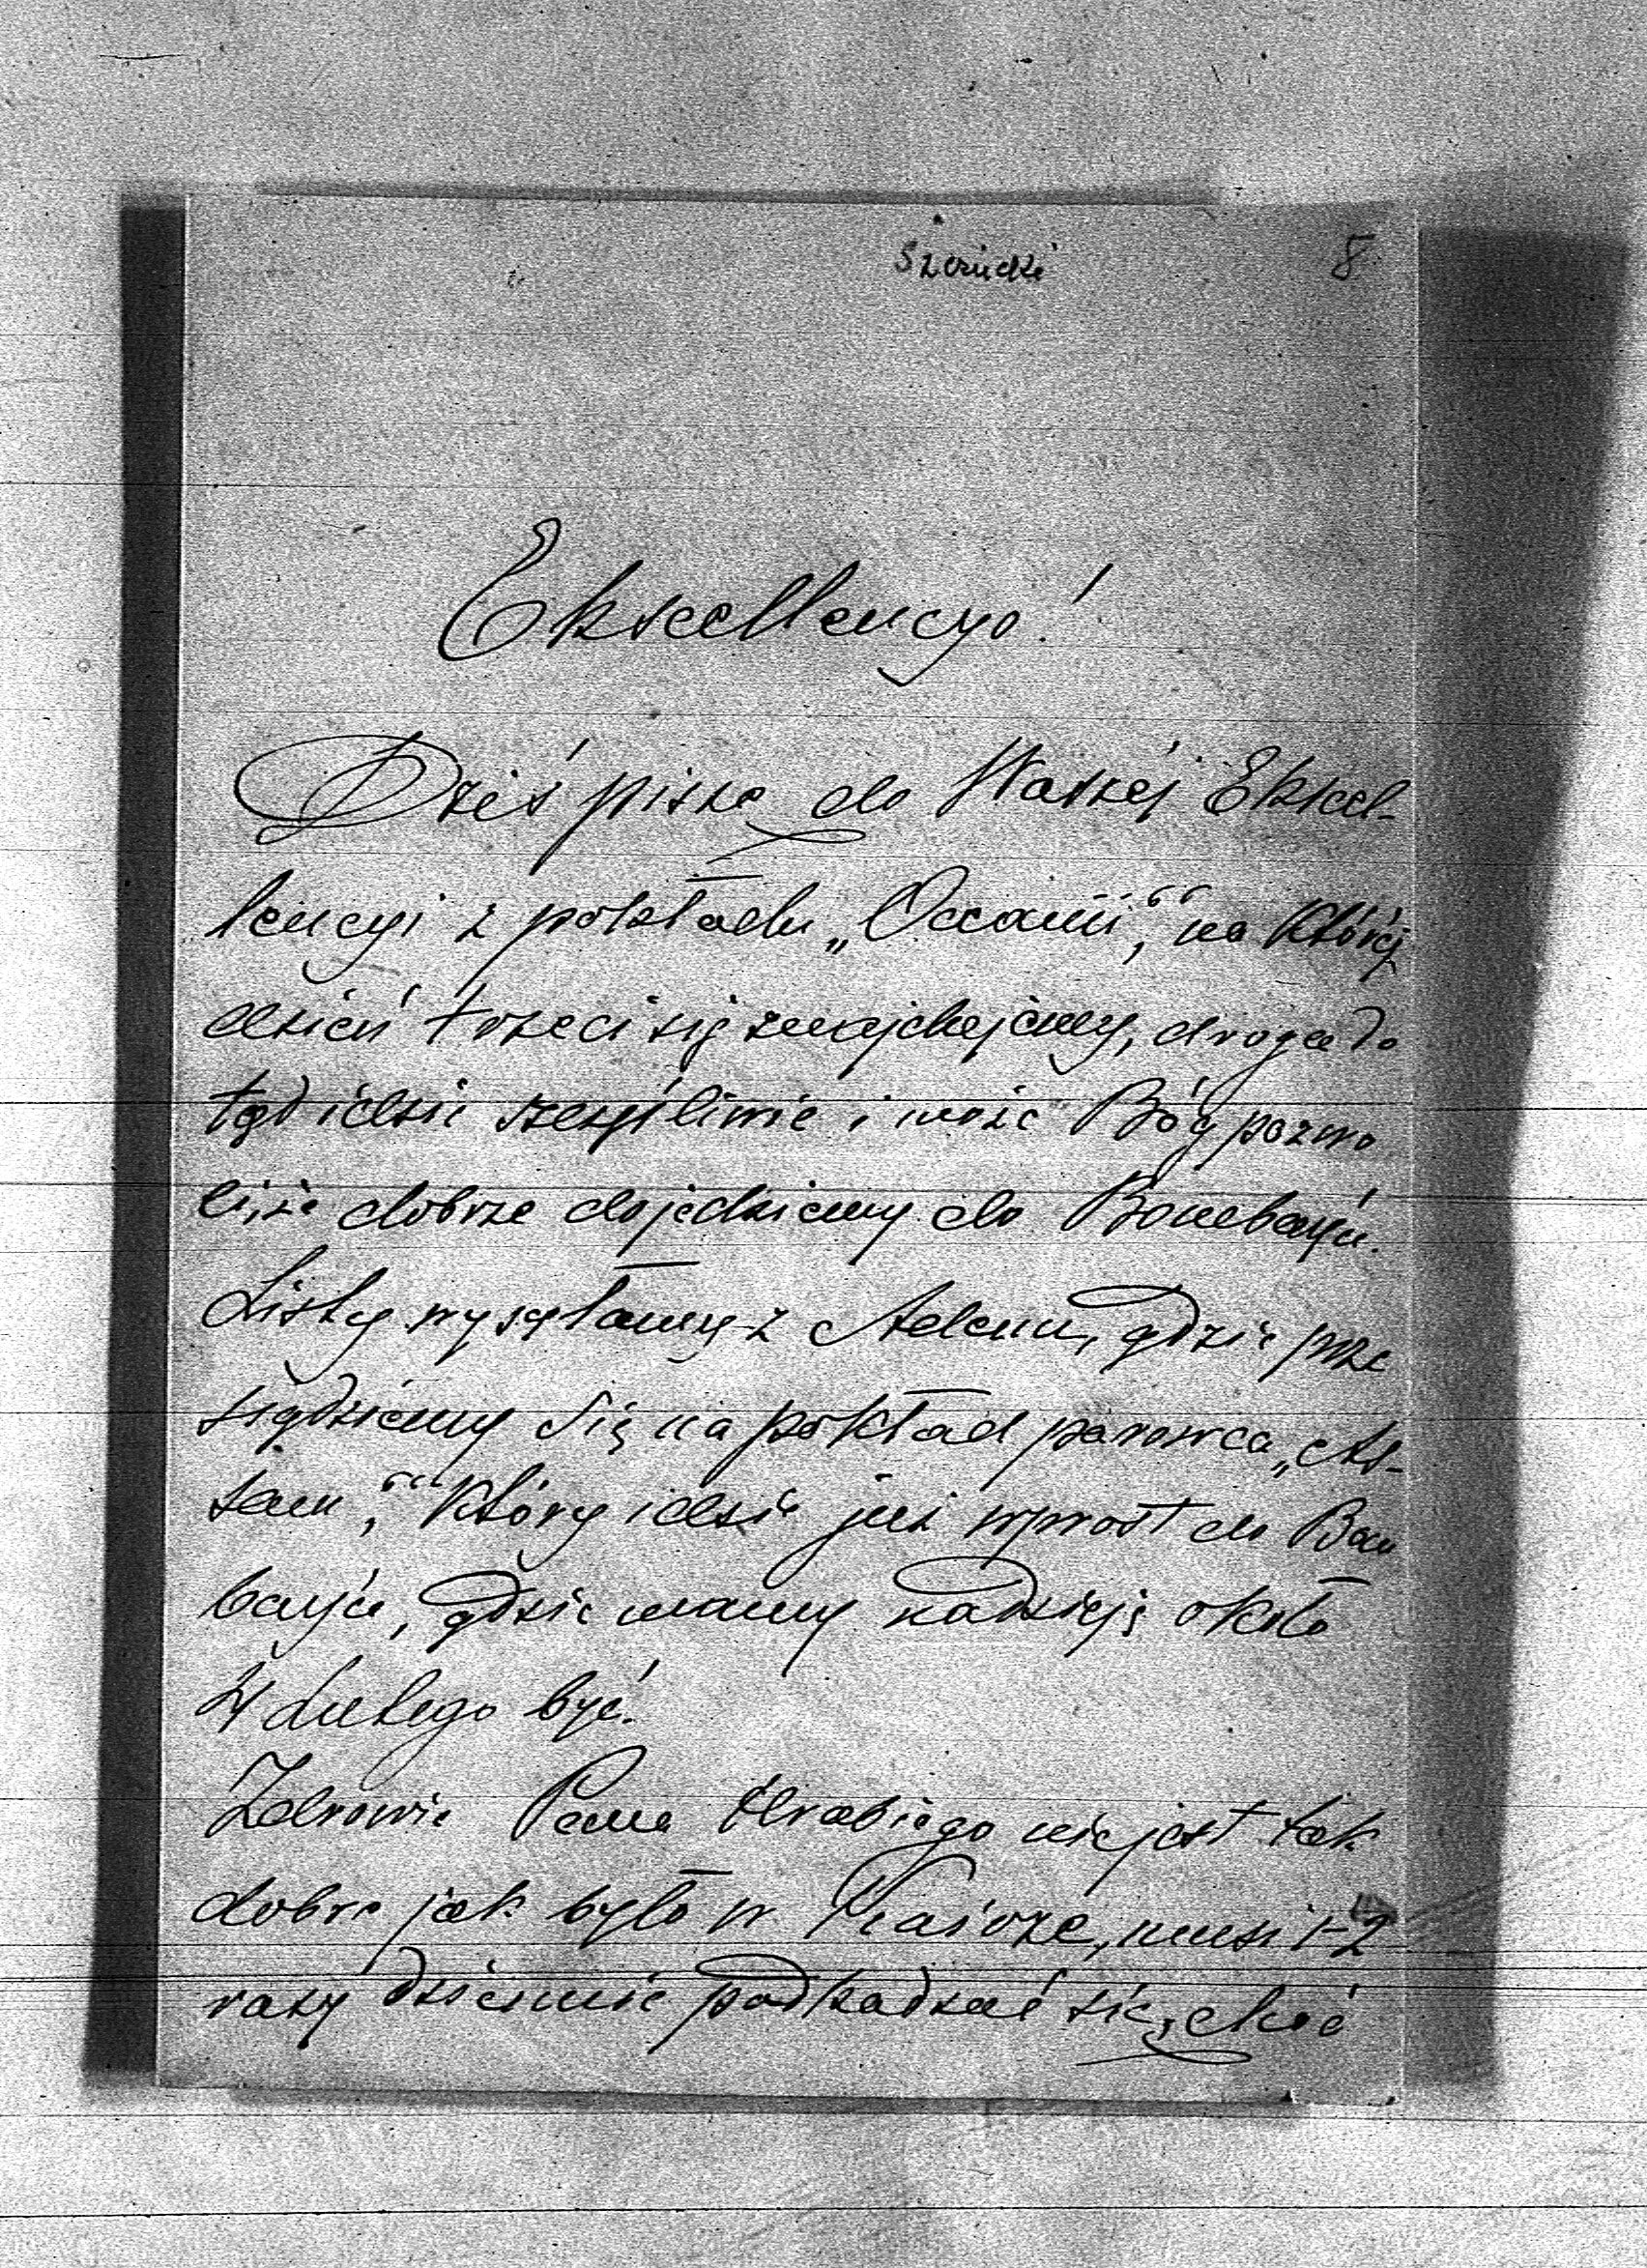 8
Ekscellencyo!
Dziś piszę do Waszéj Ekscel-
lencyi z pokładu „Oceanii“, na któréj
dzień trzeci się znajdujemy, droga do
tąd idzie szczęśliwie i może Bóg pozwo
li, że dobrze dojedziemy do Bombayu.
Listy wysyłamy z Adenu, gdzie prze
siądziemy się na pokład parowca „As-
sam“, który idzie już wprost do Bom
bayu, gdzie mamy nadzieję około
4 Lutego być.
Zdrowie Pana Hrabiego nie jest tak
dobre jak było w Kairze, musi 1-2
razy dziennie podkadzać się, choć